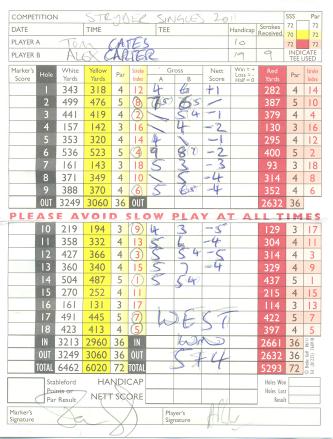 COMPETITION STROKER SINGLES 2011
DATE TIME TEE Handicap Strokes Received SSS Par
PLAYER A Tom CATES 10 72 72
PLAYER B ALEX CARTER 19 9 70 70 72 72 INDICATE TEE USED
Marker's Score Hole White Yards Yellow Yards Par Stroke Index Gross A B Nett Score Win = + Loss = - Half = 0 Red Yards Par Stroke Index
1 343 318 4 12 4 6 +1 282 4 14
2 499 476 5 8 387 5
3 441 419 4 2 379 4 4
4 157 142 3 16 4 -2 130 3 16
5 353 320 4 14 295 4 12
6 536 523 5 4 400 5 2
7 161 143 3 18 5 3 -3 93 3 18
8 371 349 4 10 314 4 8
9 388 370 4 6 352 4 6
OUT 3249 3060 36 OUT 2632 36
PLEASE AVOID SLOW PLAY AT ALL TIMES
10 219 194 3 9 4 3 -5 129 3 17
11 358 332 4 13 5 6 -4 304 4 11
12 427 366 4 3 5 54 -5 314 4 3
13 360 340 4 15 5 7 -4 329 4 9
14 504 487 5 1 5 54 437 5 1
15 270 252 4 11 215 4 15
16 161 131 3 17 114 3 13
17 491 445 5 7 WEST 422 5 7
18 423 413 4 5 397 4 5
IN 3213 2960 36 IN WON 2661 36
OUT 3249 3060 36 OUT 5+4 2632 36
TOTAL 6462 6020 72 TOTAL 5293 72
Stableford Points or Par Result HANDICAP Holes Won
NETT SCORE Holes Lost Result
Marker's Signature Player's Signature